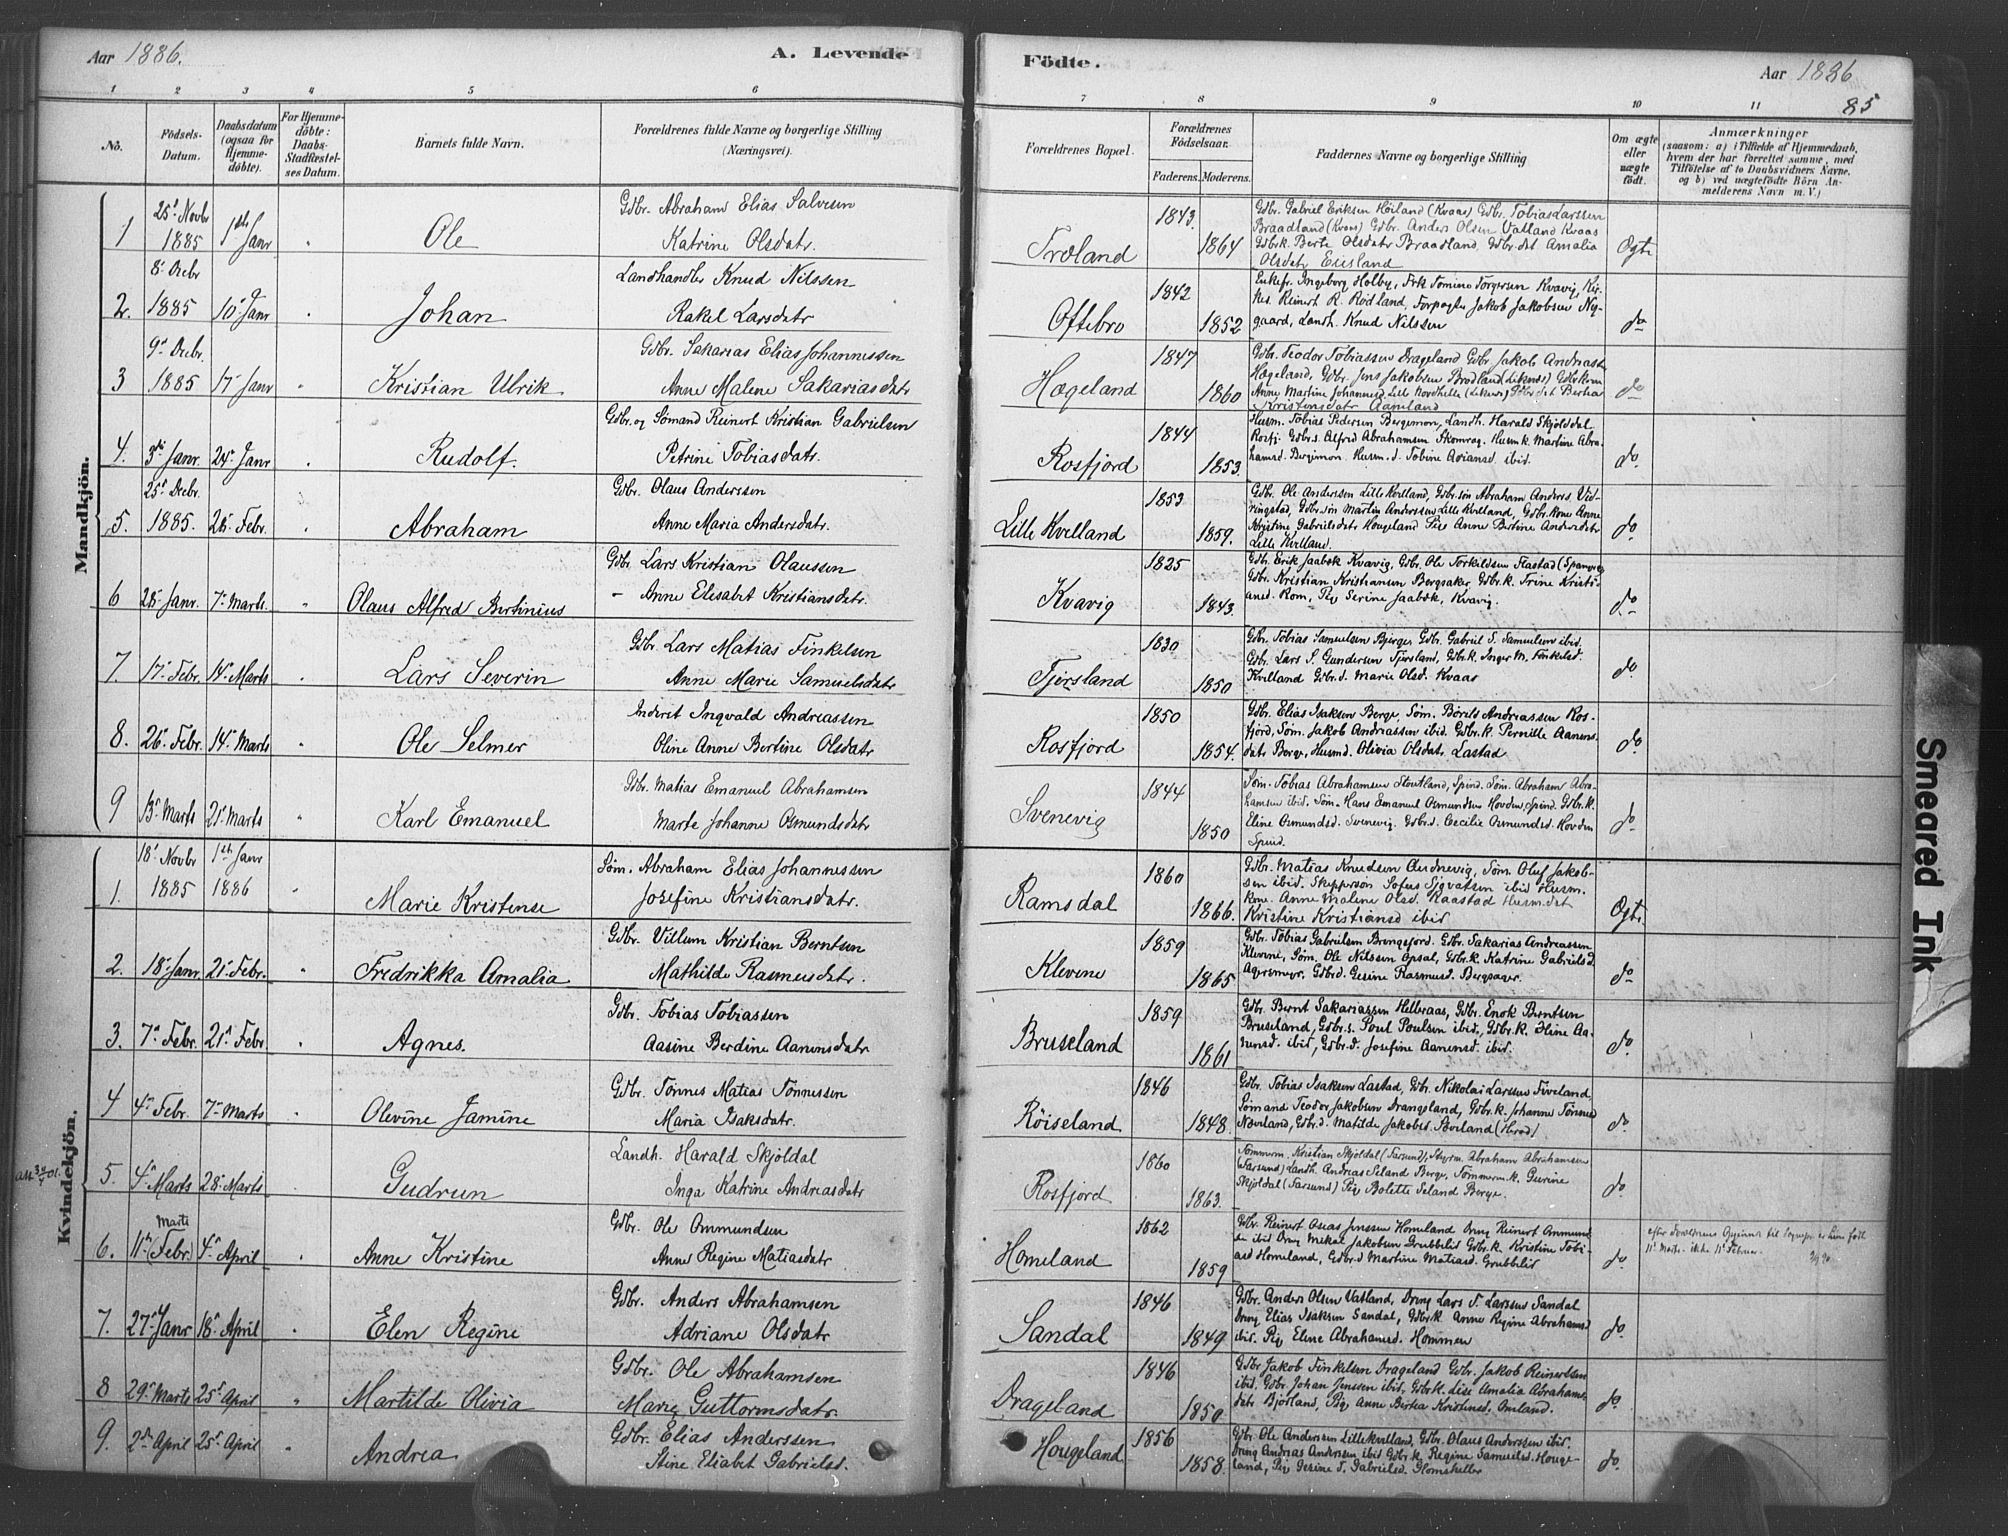 Aar 1886.
A. Levende
Födte.
Aar 1886
85
1 2 3 4 5 6 7 8 9 10 11
No.
Födsels-Datum.
Daabsdatum (ogsaa for Hjemme-döbte).
For Hjemme-döbte: Daabs-Stadfæstel-ses Datum.
Barnets fulde Navn.
Forældrenes fulde Navne og borgerlige Stilling (Næringsvei).
Forældrenes Bopæl.
Forældrenes Födselsaar.
Faderens. Moderens.
Faddernes Navne og borgerlige Stilling
Om ægte eller uægte födt.
Anmærkninger
(saasom: a) i Tilfælde af Hjemmedaab, hvem der har forrettet samme, med Tilföielse af to Daabsvidners Navne, og b) ved uægtefödte Börn An-melderens Navn m. V.)
Mandkjön.
1 25' Novbr 1885 1ste Janr Ole Gdbr. Abraham Elias Salvesen
Katrine Olsdatr. Træland 1843. 1864 Gdbr. Gabriel Eriksen Höiland (Kvaas) Gdbr. Tobias Larssen
Braadland (Kvaas) Gdbr. Anders Olsen Vatland Kvaas
Gdbrk. Berte Olsdatr Braadland, Gdbr.dat Amalia
Olsdatr Eiesland Ægte
2. 8' Decbr 1885 10' Janr Johan Landhandler Knud Nilssen
Rakel Larsdatr Oftebro 1842 1852 Enkefr. Ingeborg Holby, Frk Tomine Torgersen Kvavig, Kir-
kes. Reinert R. Rödland, Forpagter Jakob Jakobsen Ny-
gaard, Landh. Knud Nilssen do
3 9' Decbr. 1885 17' Janr Kristian Ulrik Gdbr. Sakarias Elias Johannessen
Anne Malene Sakariasdatr Hægeland 1847 1860 Gdbr. Teodor Tobiassen Drageland Gdbr Jakob Andreass
Hægeland, Gdbr. Jens Jakobsen Brodland (Liknes) Gdbrkone
Anne Martine Johannesd. Lille Nordhelle (Liknes) Gdbr.dat Bertha
Kristensdatr Aamland do
4. 3die Janr. 24' Janr Rudolf. Gdbr. og Sömand Reinert Kristian Gabrielsen
Petrine Tobiasdatr. Rosfjord 1844 1853. Husm. Tobias Pedersen Bergemon, Landh. Harald Skjolddal
Rosfj. Gdbr.s. Alfred Abrahamsen Skomrag. Husmk. Martine Abra-
hamsd. Bergimon. Husm.d. Tobine Ariansd. ibid. do.
5. 25' Decbr. 1885. 28' Febr. Abraham Gdbr. Olaus Anderssen
Anne Maria Andersdatr. Lille Kvelland 1853 1859. Gdbr. Ole Anderssen Lille Kvelland, Gdbr.sön Abraham Anders. Vid-
ringstad, Gdbr.sön Martin Anderssen Lille Kvelland, Gdbr.kone Anne
Kristine Gabrielsdatr Hougeland Pige Anne Bertine Andersdatr
Lille Kvelland. do.
6 28' Janr. 7' Marts. Olaus Alfred Bertinius Gdbr. Lars Kristian Olaussen
Anne Elisabet Kristiansdatr. Kvavig 1825 1843. Gdbr. Erik Jaabæk Kvavig, Gdbr. Ole Torkildsen Flastad (Spangereid
Gdbr. Kristian Kristiansen Bergsaker, Gdbr.k. Trine Kristi-
ansd. Rom, Pige Serine Jaabæk, Kvavig. do.
7. 17' Febr. 14' Marts Lars Severin Gdbr. Lars Matias Finkelsen
Anne Marie Samuelsdatr Tjörsland 1830 1850 Gdbr. Tobias Samuelsen Bjerge, Gdbr. Gabriel S. Samuelsen ibid.
Gdbr. Lars S. Gundersen Tjörsland, Gdbr.k. Inger M. Finkelsd.
Kvelland Gdbr.d. Marie Olsd. Kvaas do
8. 26' Febr. 14' Marts Ole Selmer Inderst Ingvald Andreassen
Oline Anne Bertine Olsdatr Rosfjord 1850 1854. Gdbr. Elias Isaksen Berge, Söm. Börils Andreassen Ros-
fjord, Söm. Jakob Andreassen ibid. Gdbr.k. Pernille Aanens-
datr Berge, Husmd. Olivia Olsdatr. Lastad do.
9 13' Marts 21' Marts Karl Emanuel Gdbr. Matias Emanuel Abrahamsen
Marte Johanne Osmundsdatr Svenevig 1844 1850 Söm. Tobias Abrahamsen Stoutland, Spind. Söm. Abraham Abra-
hamsen ibid. Söm. Hans Emanuel Osmundsen Hovden, Spind. Gdbr.k.
Eline Osmundsd. Svenevig. Gdbr.d. Cecilie Osmundsd. Hovden
Spind. do.
Kvindekjön.
1. 18' Novbr 1885 1ste Janr 1886 Marie Kristense Söm. Abraham Elias Johannessen
Josefine Kristiansdatr. Ramsdal 1860 1866. Gdbr. Matias Knudsen Andnevig, Söm. Oluf Jakob-
sen ibid. Skippersön Sofus Sigvatsen ibid Husm.
kone. Anne Malene Olsd. Raastad Husm.dat
Kristine Kristiansd ibid Ægte.
2. 18' Janr. 21' Febr. Fredrikka Amalia Gdbr. Villum Kristian Berntsen
Mathilde Rasmusdatr. Klevene 1859 1865 Gdbr. Tobias Gabrielsen Bringsfjord. Gdbr. Sakarias Andreassen
Klevene, Söm. Ole Nilssen Opsal, Gdbr.k. Katrine Gabrielsd.
Agersmyr, Gdbrd. Gesine Rasmusd. Bergsager. do
3. 7' Febr. 21' Febr Agnes. Gdbr. Tobias Tobiassen
Aasine Berdine Aanensdatr Bruseland 1859 1861 Gdbr. Bernt Sakariassen Helleraas, Gdbr. Enok Berntsen
Bruseland, Gdbr.s. Poul Poulsen ibid., Gdbr.k. Eline Aa-
nensd. ibid, Gdbr.d. Josefine Aanensd. ibid. do.
4 4' Febr. 7' Marts Olevine Jamine Gdbr. Tönnes Matias Tönnessen
Maria Isaksdatr. Röiseland 1846 1848. Gdbr. Tobias Isaksen Lastad, Gdbr. Nikolai Larssen Fiveland,
Sömand Teodor Jakobsen Drangsland, Gdbr.k. Johanne Tönnes
Næviland, Gdbr.d. Matilde Jakobsd. Röviland (Herad) do.
5. 4' Marts 28' Marts Gudrun Landh. Harald Skjöldal
Inga Katrine Andreasdatr Rosfjord 1860 1863. Tömmerm. Kristian Skjöldal (Farsund), Styrm. Abraham Abrahamsen
(Farsund) Landh. Andreas Seland Berge, Tömmerm.k. Gurine
Skjöldal (Farsund) Pige Bolette Seland Berge. do
6. 11te Marts (Febr.) 4' April Anne Kristine Gdbr. Ole Ommundsen
Anne Regine Matiasdatr Homeland 1862 1859 Gdbr. Reinert Oseas Jenssen Homeland Dreng Reinert Ommund-
sen ibid Dreng Mikal Jakobsen Grubbelid Gdbr.k. Kristine Tobi-
asd Homeland, Gdbr.d Martine Matiasd. Grubbelid do. efter Forældrenes Opgivne til Sognepr. er hun födt
11' Marts ikke 11' Februar.
7. 27' Janr 18' April Elen Regine Gdbr. Anders Abrahamsen
Adriane Olsdatr Sandal 1846 1849 Gdbr. Anders Olsen Vatland, Dreng Lars T. Larssen Sandal
Dreng Elias Isaksen Sandal, Gdbr.k. Anne Regine Abrahamsd
ibid. Pige Eline Abrahamsd. Hommen do.
8 29' Marts 25' April Martilde Olivia Gdbr. Ole Abrahamsen
Marie Guttormsdatr. Drageland 1846 1850 Gdbr Jakob Finkelsen Drageland Gdbr. Jakob Reinertsen
ibid. Gdbr. Johan Jenssen ibid, Gdbr.k. Lise Amalia Abrahams-
datr Björland, Pige Anne Birtha Kristensd. Omland. do.
9. 2den April 25' April Andrea Gdbr. Elias Anderssen
Stine Elisabet Gabrielsd. Hougeland 1856 1858. Gdbr. Ole Anderssen Lillekvelland, Gdbr. Olaus Anderssen ibid.
Dreng Andreas Anderssen ibid Gdbr.k Regine Samuelsd. Houge-
land, Pige Gesine T. Gabrielsd. Glomshiller do.
Smeared Ink